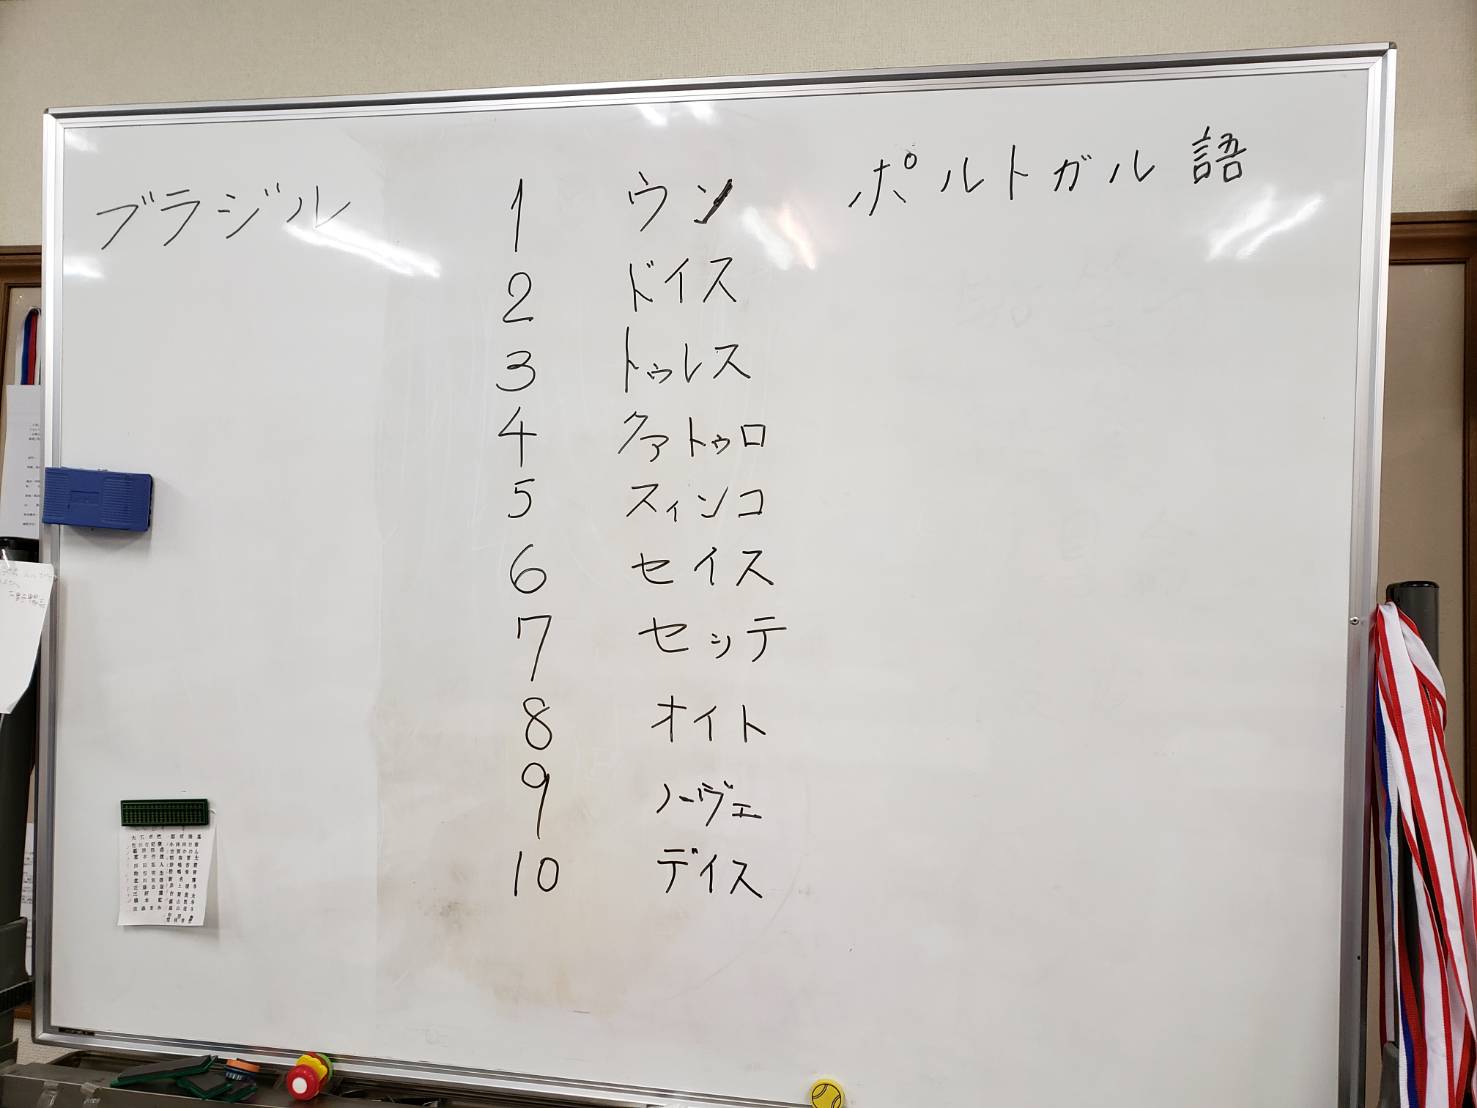 ブラジル 1 ウン ポルトガル語
2 ドイス
3 トゥレス
4 クァトゥロ
5 スィンコ
6 セイス
7 セッテ
8 オイト
9 ノーヴェ
10 デイス